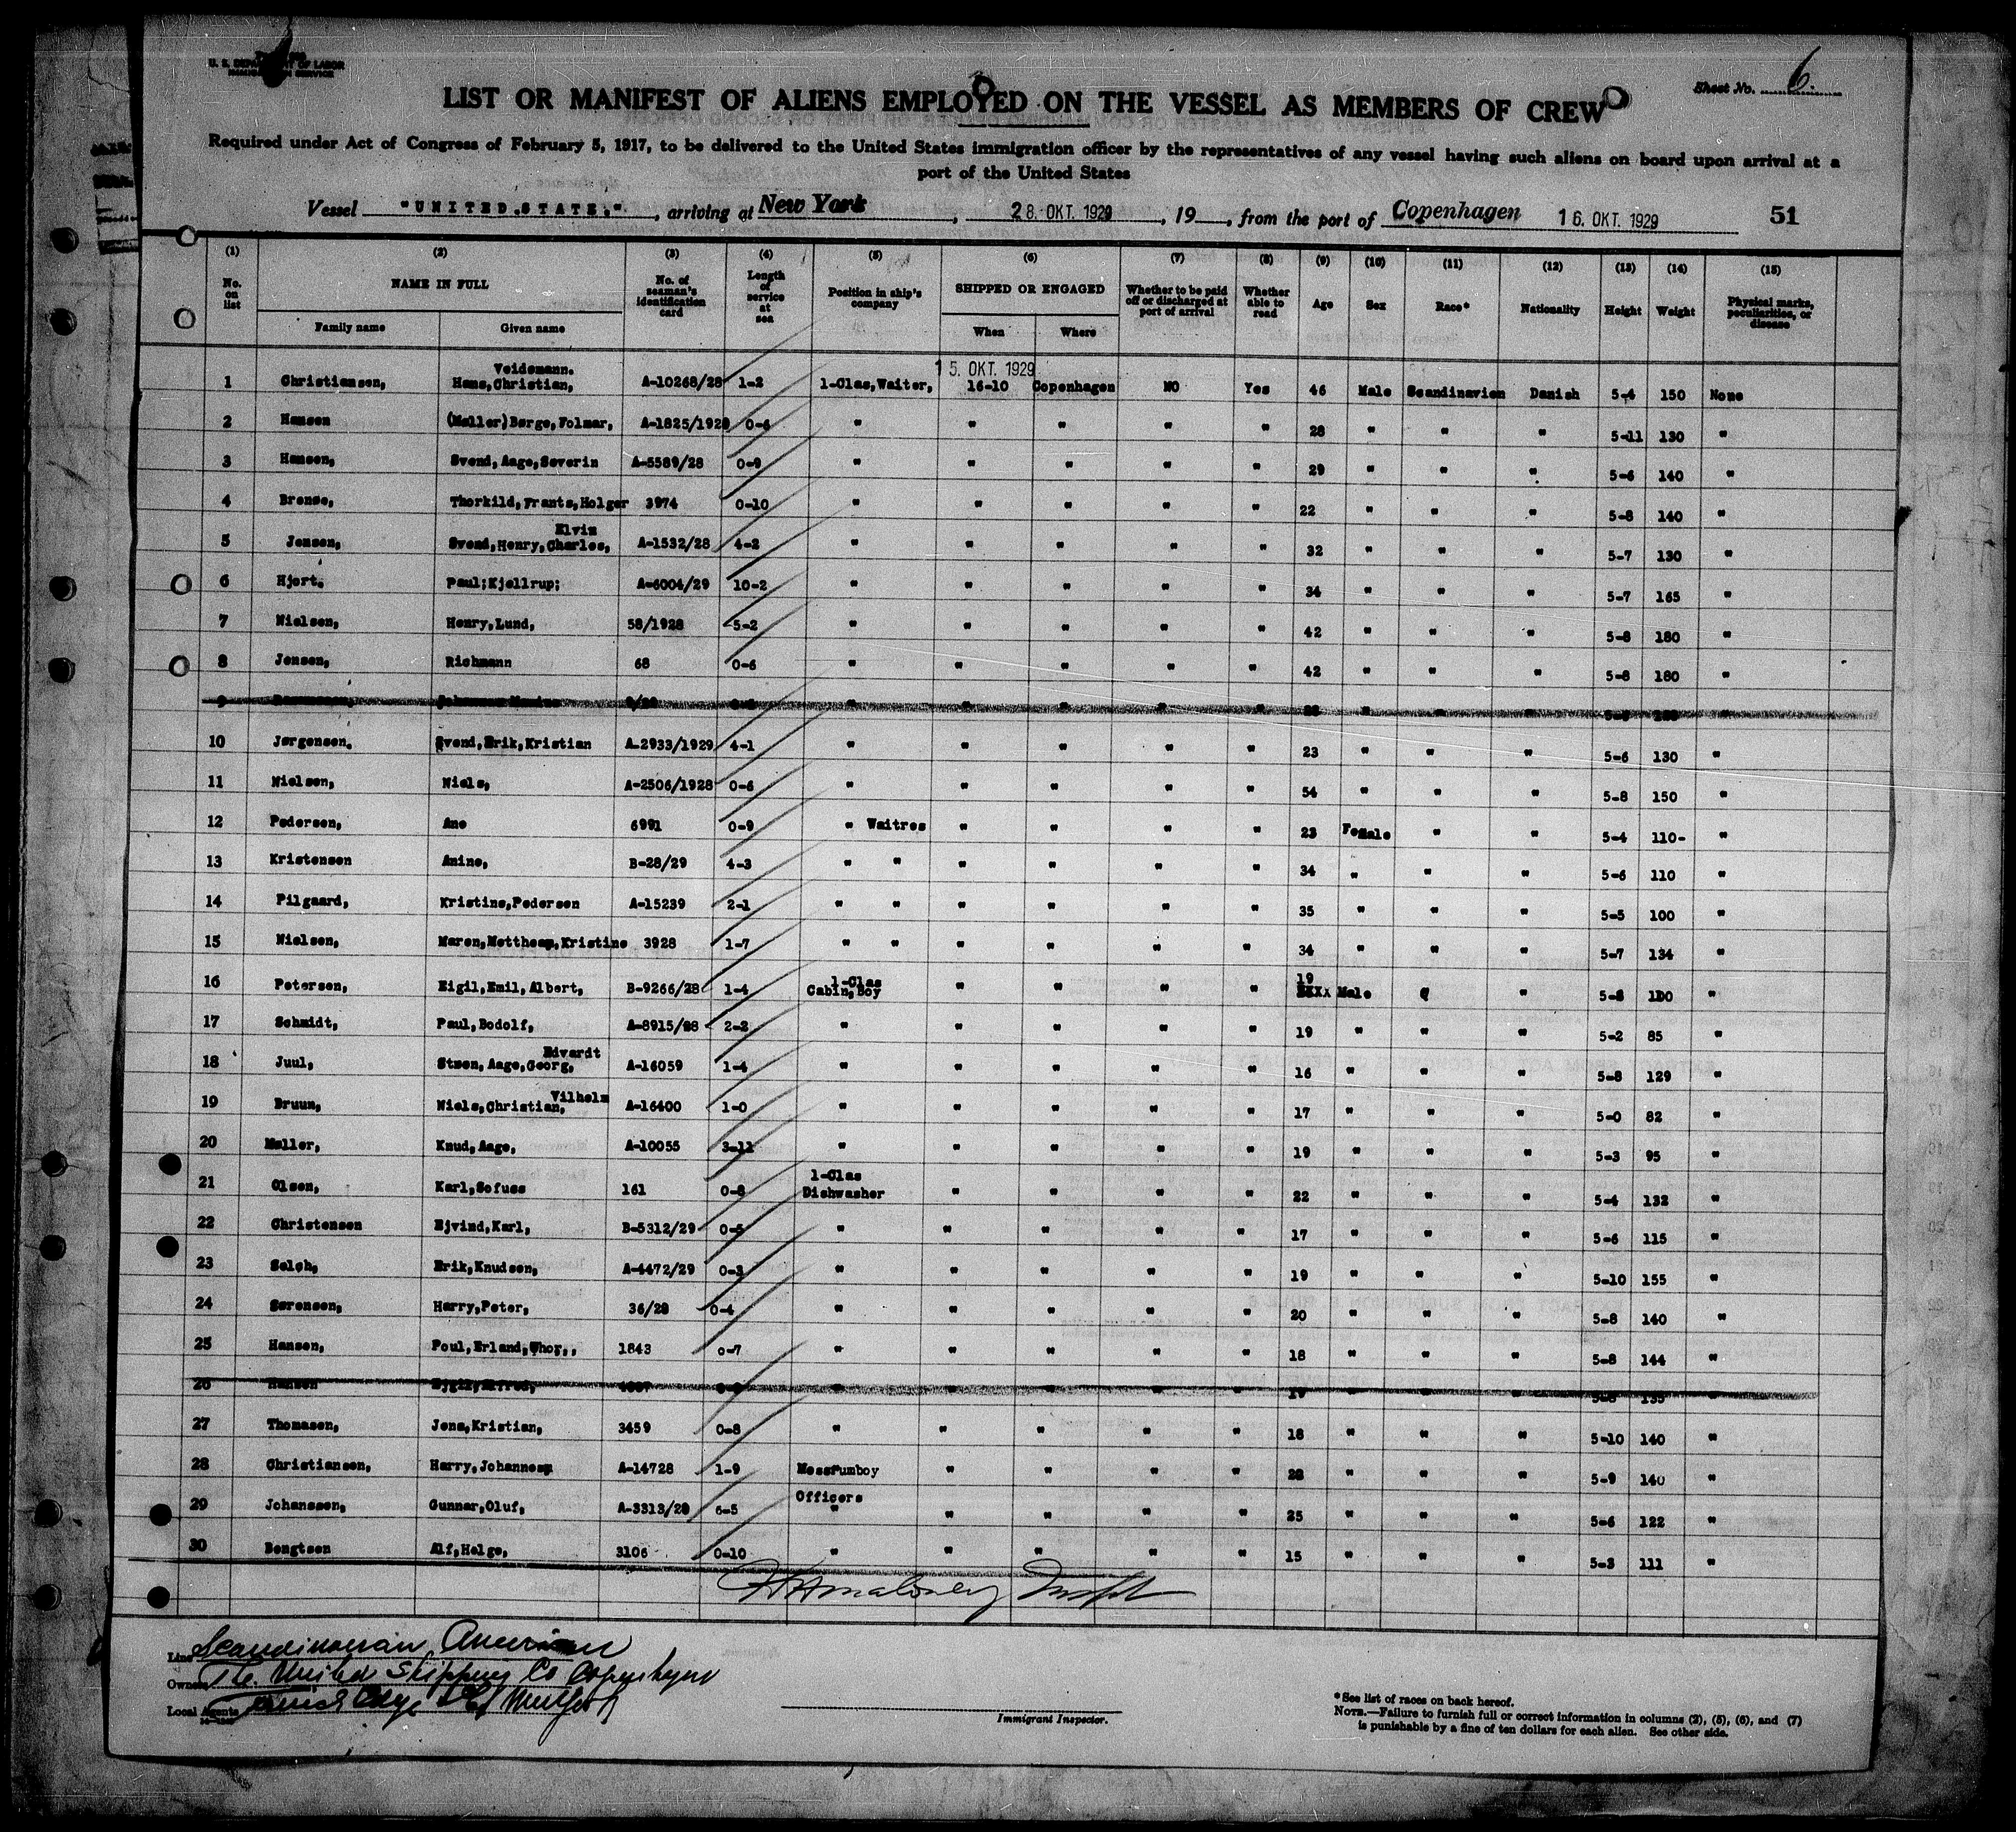 U. S. DEPARTMENT OF LABOR
IMMIGRATION SERVICE
Sheet No. 6.
LIST OR MANIFEST OF ALIENS EMPLOYED ON THE VESSEL AS MEMBERS OF CREW
Required under Act of Congress of February 5, 1917, to be delivered to the United States immigration officer by the representatives of any vessel having such aliens on board upon arrival at a
port of the United States
Vessel "UNITED.STATE.", arriving at New York, 28. OKT. 1929, 19, from the port of Copenhagen 16. OKT. 1929 51
(1) (2) (3) (4) (5) (6) (7) (8) (9) (10) (11) (12) (13) (14) (15)
No. on list NAME IN FULL No. of seaman's identification card Length of service at sea Position in ship's company SHIPPED OR ENGAGED Whether to be paid off or discharged at port of arrival Whether able to read Age Sex Race* Nationality Height Weight Physical marks, peculiarities, or disease
Family name Given name When Where
Veidemann. 15. OKT. 1929
1 Christiansen, Hans,Christian, A-10268/28 1-2 1-Clas,Waiter, 16-10 Copenhagen NO Yes 46 Male Scandinavien Danish 5-4 150 None
2 Hansen (Møller)Børge,Folmar, A-1825/1928 0-6 " " " " " 28 " " " 5-11 130 "
3 Hansen, Svend,Aage,Severin A-5589/28 0-9 " " " " " 29 " " " 5-6 140 "
4 Brense, Thorkild,Frants,Holger 3974 0-10 " " " " " 22 " " " 5-8 140 "
Elvin
5 Jensen, Svend,Henry,Charles, A-1532/28 4-2 " " " " " 32 " " " 5-7 130 "
6 Hjort. Paul;Kjellrup; A-6004/29 10-2 " " " " " 34 " " " 5-7 165 "
7 Nielsen, Henry,Lund, 58/1928 5-2 " " " " " 42 " " " 5-8 180 "
8 Jensen, Richmann 68 0-6 " " " " " 42 " " " 5-8 180 "
9 " " " " " " " " "
10 Jørgensen. Svend,Erik,Kristian A-2933/1929 4-1 " " " " " 23 " " " 5-6 130 "
11 Nielsen, Niels, A-2506/1928 0-6 " " " " " 54 " " " 5-8 150 "
12 Pedersen, Ane 6991 0-9 " Waitres " " " " 23 Female " " 5-4 110- "
13 Kristensen Anine, B-28/29 4-3 " " " " " " 34 " " " 5-6 110 "
14 Pilgaard, Kristine,Pedersen A-15239 2-1 " " " " " " 35 " " " 5-5 100 "
15 Nielsen, Maren,Kristine 3928 1-7 " " " " " " 34 " " " 5-7 134 "
1-Clas 19
16 Petersen, Eigil,Emil,Albert, B-9266/28 1-4 Cabin,Boy " " " " Male " " 5-8 100 "
17 Schmidt, Paul,Bodolf, A-8915/28 2-2 " " " " " 19 " " " 5-2 85 "
Edvardt
18 Juul, Steen,Aage,Georg, A-16059 1-4 " " " " " 16 " " " 5-8 129 "
Vilhelm
19 Bruun, Niels,Christian, A-16400 1-0 " " " " " 17 " " " 5-0 82 "
20 Møller, Knud,Aage, A-10055 3-11 " " " " " 19 " " " 5-3 95 "
1-Clas
21 Olsen, Karl,Sofuss 161 0-8 Dishwasher " " " " 22 " " " 5-4 132 "
22 Christensen Ejvind,Karl, B-5312/29 0-5 " " " " " 17 " " " 5-6 115 "
23 Selch, Erik,Knudsen, A-4472/29 0-3 " " " " " 19 " " " 5-10 155 "
24 Sørensen, Harry,Peter, 36/28 0-4 " " " " " 20 " " " 5-8 140 "
25 Hansen, Poul,Erland,Thor,, 1843 0-7 " " " " " 18 " " " 5-8 144 "
26 Hansen " " " " " " " " 5-8 135 "
27 Thomasen, Jens,Kristian, 3459 0-8 " " " " " 18 " " " 5-10 140 "
28 Christiansen, Harry,Johannes A-14728 1-9 Messrumboy " " " " 28 " " " 5-9 140 "
Officers
29 Johanssen, Gunnar,Oluf, A-3313/28 6-5 " " " " " 25 " " " 5-6 122 "
30 Bengtsen Alf,Helge, 3106 0-10 " " " " " 15 " " " 5-3 111 "
Line Scandinavian American
Owners The United Shipping Co Copenhagen
Local Agents
Immigrant Inspector.
*See list of races on back hereof.
NOTE.—Failure to furnish full or correct information in columns (2), (5), (6), and (7)
is punishable by a fine of ten dollars for each alien. See other side.